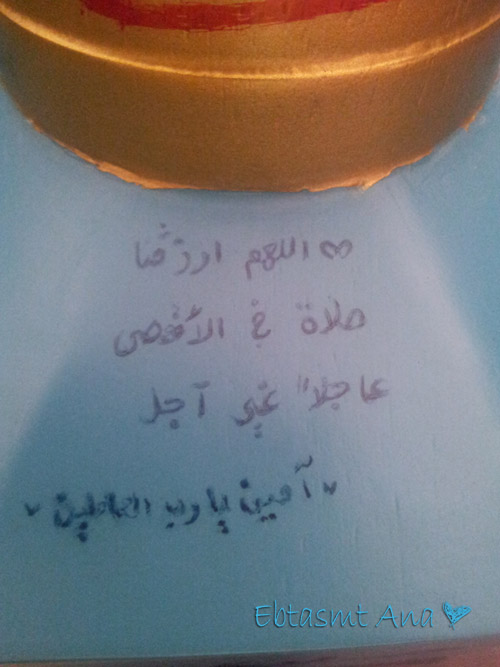 ♡ اللهم ارزقنا
صلاة في الأقصى
عاجلاً غير آجل
آمين يا رب العالمين
Ebtasmt Ana